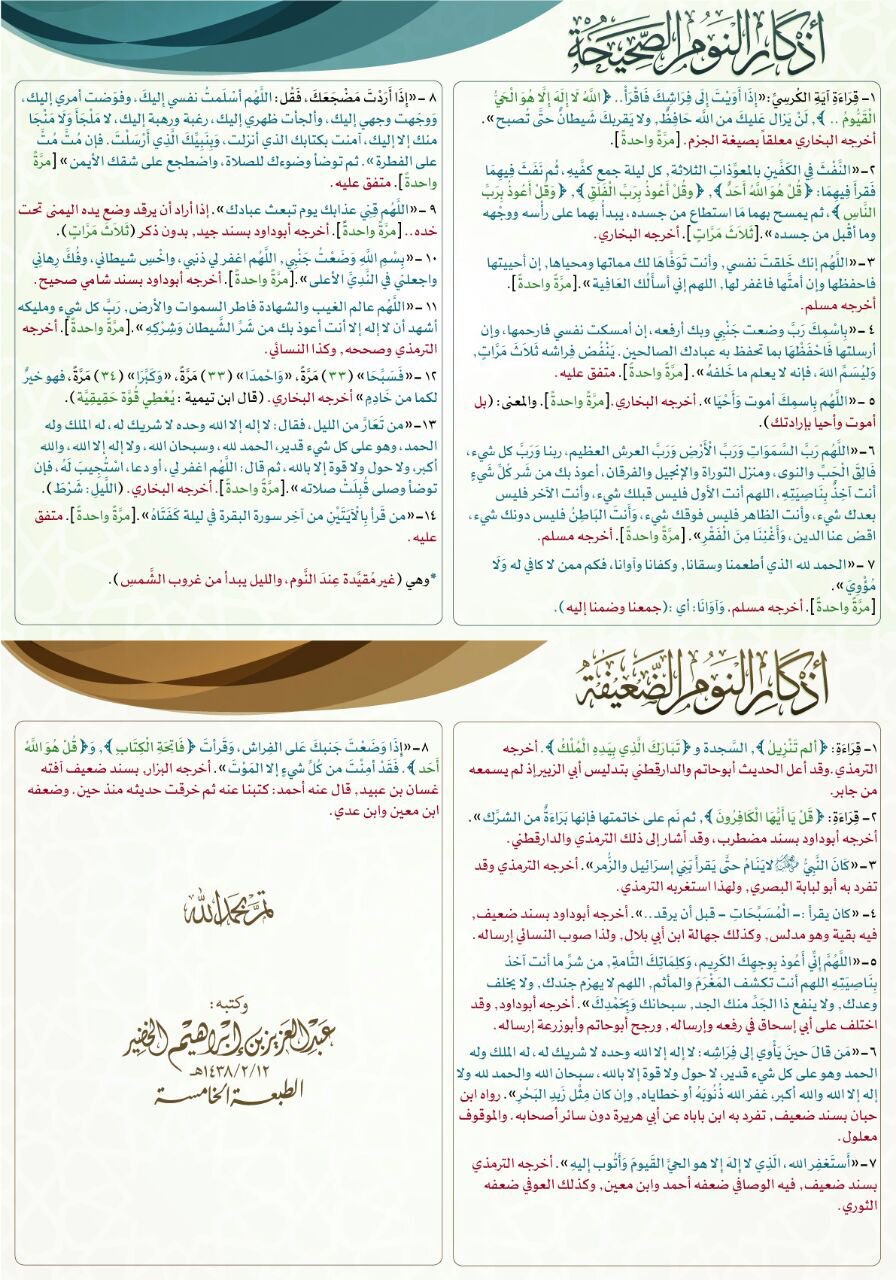 أذكار النوم الصحيحة
١- قِرَاءَةِ آيَةِ الكُرسِيِّ:«إذَا أوَيْتَ إلَى فِرَاشِكَ فَاقْرَأ.. ﴿اللَّهُ لا إِلَهَ إِلا هُوَ الْحَيُّ
الْقَيُّومُ .. ﴾, لَنْ يَزَال عليكَ من الله حَافِظٌ, ولا يَقربكَ شَيطانٌ حتَّى تُصبح».
أخرجه البخاري معلقاً بصيغة الجزم. [مرَّةً واحدةً].
٢-«النَّفْثَ في الكَفَّينِ بالمعوِّذاتِ الثلاثة, كل ليلة جمع كفَّيهِ, ثُم نَفَثَ فِيهِمَا
فَقرأ فِيهِمَا: ﴿قُلْ هُوَ اللَّهُ أَحَدٌ﴾, ﴿وقُلْ أَعُوذُ بِرَبِّ الْفَلَقِ﴾, ﴿وَقُلْ أَعُوذُ بِرَبِّ
النَّاسِ﴾, ثم يمسح بهما مَا استطاع من جسده, يبدأ بهما على رأسه ووجْهه
وما أقْبل من جسده».[ثَلاثَ مَرَّاتٍ]. أخرجه البخاري.
٣-«اللَّهُم إنك خَلقتَ نفسي, وأنت تَوَفَّاهَا لك مماتها ومحياها, إن أحييتها
فاحفظها وإن أمتَّها فاغفر لها, اللهم إني أسألُكَ العَافِية».[مرَّةً واحدةً].
أخرجه مسلم.
٤-«بِاسمِكَ رَبَّ وضعت جَنْبِي وبك أرفعه, إن أمسكت نفسي فارحمها, وإن
أرسلتها فَاحْفَظْهَا بما تحفظ به عبادك الصالحين. يَنْفُض فِراشه ثَلاثَ مَرَّاتٍ,
وليُسَمِّ اللهَ, فإنه لا يعلم ما خَلفهُ».[مرَّةً واحدةً]. متفق عليه.
٥-«اللَّهُم بِاسمِكَ أموت وَأحْيَا». أخرجه البخاري.[مرَّةً واحدةً]. والمعنى: (بل
أموت وأحيا بإرادتك).
٦-«اللَّهُم رَبَّ السَّمَوَاتِ وَرَبَّ الْأَرْضِ وَرَبَّ العرش العظيم، ربنا وَرَبَّ كل شيء،
فَالِقَ الْحَبِّ والنوى، ومنزل التوراة والإنجيل والفرقان، أعوذ بك من شَر كُلِّ شَيءٍ
أنت آخِذٌ بِنَاصِيَتِهِ، اللهم أنت الأول فليس قبلك شيء، وأنت الآخر فليس
بعدك شيء، وأنت الظاهر فليس فوقك شيء، وَأنتَ البَاطِنُ فليس دونك شيء،
اقضِ عنا الدين، وَأغْنِنَا مِنَ الْفَقْرِ».[مرَّةً واحدةً]. أخرجه مسلم.
٧-«الحمد لله الذي أطعمنا وسقانا, وكفانا وآوانا، فكم ممن لا كافي له وَلَا
مُؤْوِيَ».
[مرَّةً واحدةً]. أخرجه مسلم. وَآوَانَا: أي :(جمعنا وضمنا إليه).
٨-«إذَا أرَدْتَ مَضْجَعَكَ، فَقُل: اللَّهُم أسْلَمتُ نفسي إليكَ، وفوَضت أمري إليك،
وَوَجَهت وجهي إليك، وألجأت ظهري إليك، رغبة ورهبة إليك، لا مَلْجَأ وَلَا مَنْجَا
منك إلا إليك، آمنت بكتابك الذي أنزلت، وَبنَبِيِّكَ الَّذِي أرْسَلْتَ. فإن مُتَّ مُتَّ
على الفطرة». ثم توضأ وضوءك للصلاة، واضطجع على شقك الأيمن»[مرَّةً
واحدةً]. متفق عليه.
٩-«اللَّهُم قِنِي عذابك يوم تبعث عبادك». إذا أراد أن يرقد وضع يده اليمنى تحت
خده..[مرَّةً واحدةً]. أخرجه أبوداود بسند جيد, بدون ذكر (ثَلاثَ مَرَّاتٍ).
١٠-«بِسْمِ اللهِ وَضَعْتُ جَنْبِي, اللَّهُم اغفر لي ذنبي, واخْسِ شيطاني, وفُكَّ رِهاني
واجعلني في النَّدِيِّ الأعلى».[مرَّةً واحدةً]. أخرجه أبوداود بسند شامي صحيح.
١١-«اللَّهُم عالم الغيب والشهادة فاطر السموات والأرض, رَبَّ كل شيء ومليكه
أشهد أن لا إله إلا أنت أعوذ بك من شَرِّ الشَّيطان وَشِرْكِهِ».[مرَّةً واحدةً]. أخرجه
الترمذي وصححه, وكذا النسائي.
١٢-«فَسَبِّحَا» (٣٣) مَرَّةً, «وَاحْمدَا» (٣٣) مَرَّةً, «وَكَبِّرَا» (٣٤) مَرَّةً, فهو خيرٌ
لكما من خَادِمٍ» أخرجه البخاري. (قال ابن تيمية : يُعْطِي قُوَّة حَقِيقِيَّة).
١٣-«من تَعَارَّ من الليل، فقال: لا إله إلا الله وحده لا شريك له، له الملك وله
الحمد، وهو على كل شيء قدير، الحمد لله، وسبحان الله، ولا إله إلا الله، والله
أكبر، ولا حول ولا قوة إلا بالله، ثم قال: اللَّهُم اغفر لي، أو دعا، اسْتُجِيبَ لَهُ، فإن
توضأ وصلى قُبِلَتْ صلاته».[مرَّةً واحدةً]. أخرجه البخاري. (اللَّيل: شَرْطٌ).
١٤-«من قَرأ بِالْآيَتَيْنِ من آخِر سورة البقرة في ليلة كَفَتَاهُ».[مرَّةً واحدةً]. متفق
عليه.
*وهي (غير مُقيَّدة عِندَ النَّوم، والليل يبدأ من غروب الشَّمسِ).
أذكار النوم الضعيفة
١- قِرَاءَةِ: ﴿ألم تَنْزِيلُ﴾, السَّجدة و ﴿تَبَارَكَ الَّذِي بِيَدِهِ الْمُلْكُ﴾. أخرجه
الترمذي.وقد أعل الحديث أبوحاتم والدارقطني بتدليس أبي الزبير إذ لم يسمعه
من جابر.
٢- قِرَاءَةِ: ﴿قُلْ يَا أَيُّهَا الْكَافِرُونَ﴾, ثم نَم على خاتمتها فإنها بَرَاءَةٌ من الشرَّك».
أخرجه أبوداود بسند مضطرب، وقد أشار إلى ذلك الترمذي والدارقطني.
٣-«كَانَ النَّبِيُّ ﷺ لايَنَامُ حتَّى يَقرأ بَنِي إسرَائِيل والزُّمر». أخرجه الترمذي وقد
تفرد به أبو لبابة البصري, ولهذا استغربه الترمذي.
٤-«كان يقرأ :- الْمُسَبِّحَاتِ - قبل أن يرقد..». أخرجه أبوداود بسند ضعيف,
فيه بقية وهو مدلس, وكذلك جهالة ابن أبي بلال, ولذا صوب النسائي إرساله.
٥-«اللَّهُمَّ إنِّي أعُوذ بوجهِكَ الكَرِيم, وَكلِمَاتِكَ التَّامةِ, من شرِّ ما أنت آخذ
بِنَاصِيَتِهِ اللهم أنت تكشف المَغْرَمَ والمأثم, اللهم لا يهزم جندك, ولا يخلف
وعدك, ولا ينفع ذا الجَدِّ منك الجد, سبحانك وَبِحَمْدِكَ». أخرجه أبوداود, وقد
اختلف على أبي إسحاق في رفعه وإرساله, ورجح أبوحاتم وأبوزرعة إرساله.
٦-«مَن قالَ حينَ يَأوي إلى فِرَاشِه: لا إله إلا الله وحده لا شريك له, له الملك وله
الحمد وهو على كل شيء قدير, لا حول ولا قوة إلا بالله, سبحان الله والحمد لله ولا
إله إلا الله والله أكبر, غفر الله ذُنُوبَهُ أو خطاياه, وإن كان مِثْل زَبدِ البَحْرِ». رواه ابن
حبان بسند ضعيف, تفرد به ابن باباه عن أبي هريرة دون سائر أصحابه. والموقوف
معلول.
٧-«أستَغفِر الله, الَّذِي لا إلهَ إلا هو الحيَّ القَيومَ وَأتُوب إليهِ». أخرجه الترمذي
بسند ضعيف, فيه الوصافي ضعفه أحمد وابن معين, وكذلك العوفي ضعفه
الثوري.
٨-«إذَا وَضَعْتَ جَنبكَ عَلى الفِراش, وَقَرأتَ ﴿فَاتِحَةِ الْكِتَابِ﴾, وَ﴿قُلْ هُوَ اللَّهُ
أَحَد﴾. فَقَدْ أمِنْتَ من كُلِّ شيءٍ إلا المَوْتَ». أخرجه البزار, بسند ضعيف آفته
غسان بن عبيد, قال عنه أحمد: كتبنا عنه ثم خرقت حديثه منذ حين. وضعفه
ابن معين وابن عدي.
تم بحمد الله
وكتبه :
عبد العزيز بن إبراهيم الخضير
١٤٣٨/٢/١٢هـ
الطبعة الخامسة